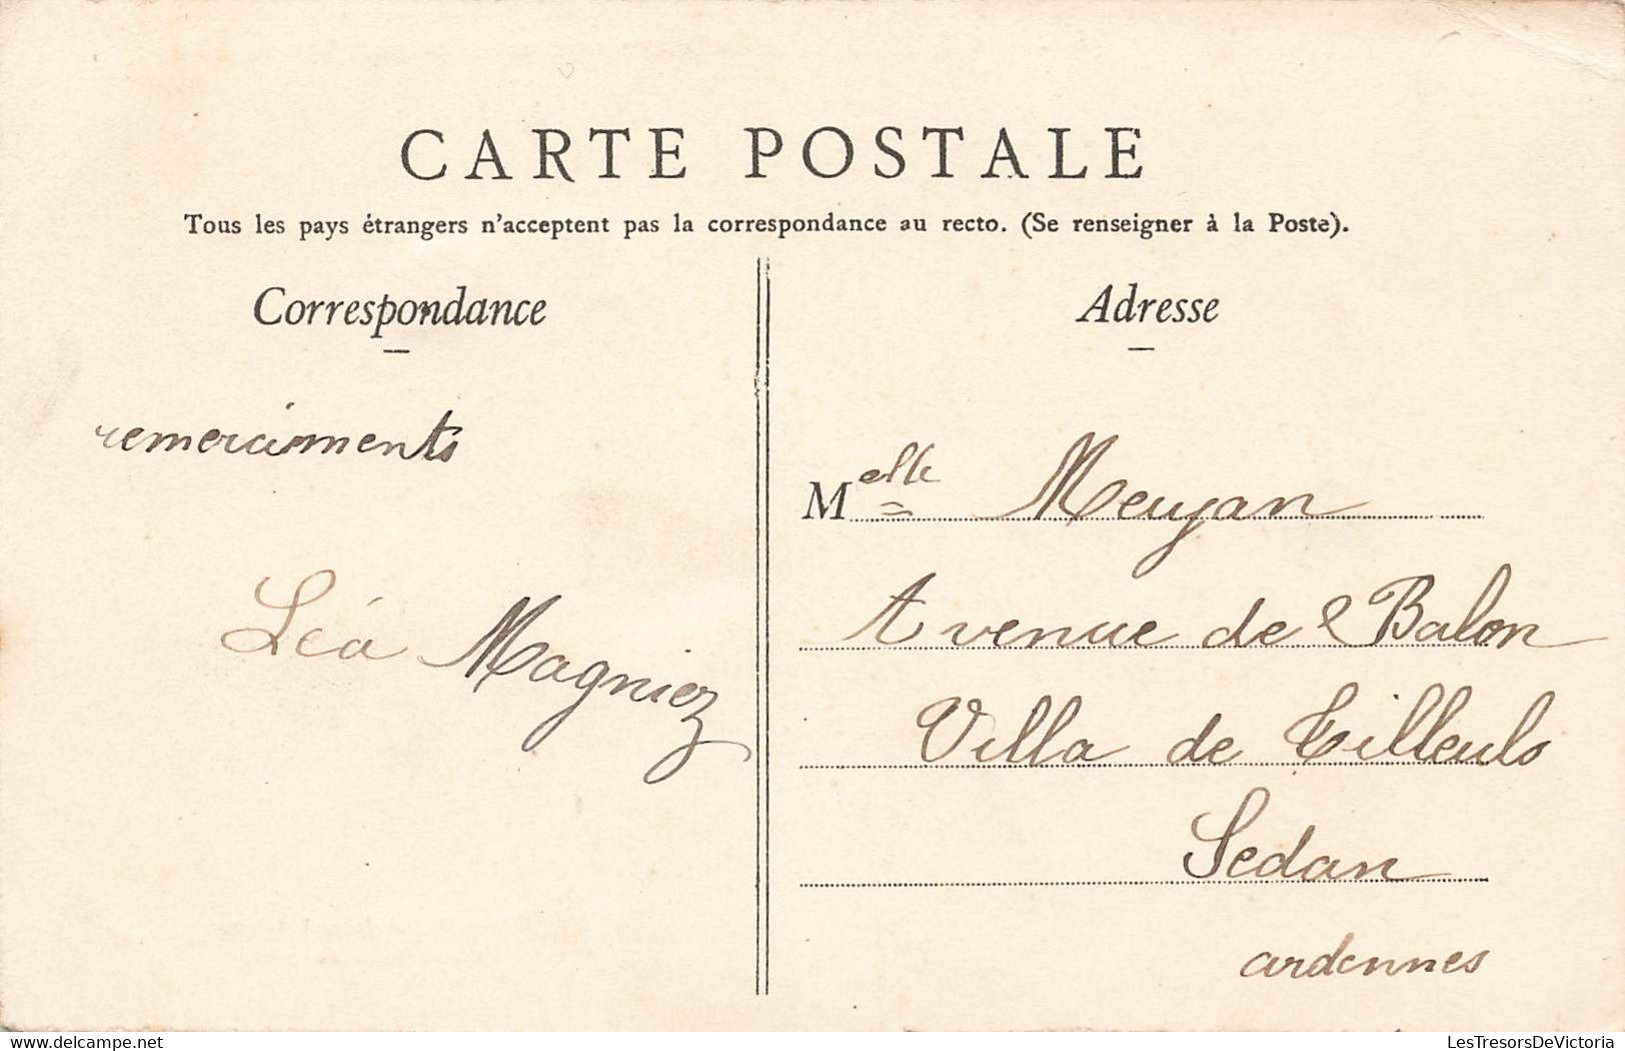 CARTE POSTALE
Tous les pays étrangers n'acceptent pas la correspondance au recto. (Se renseigner à la Poste).
Correspondance
remerciments
Léa Magniez
Adresse
Melle Meujan
Avenue de Balon
Villa de Tilleuls
Sedan
ardennes
www.balkanphila.com
LesTresorsDeVictoria